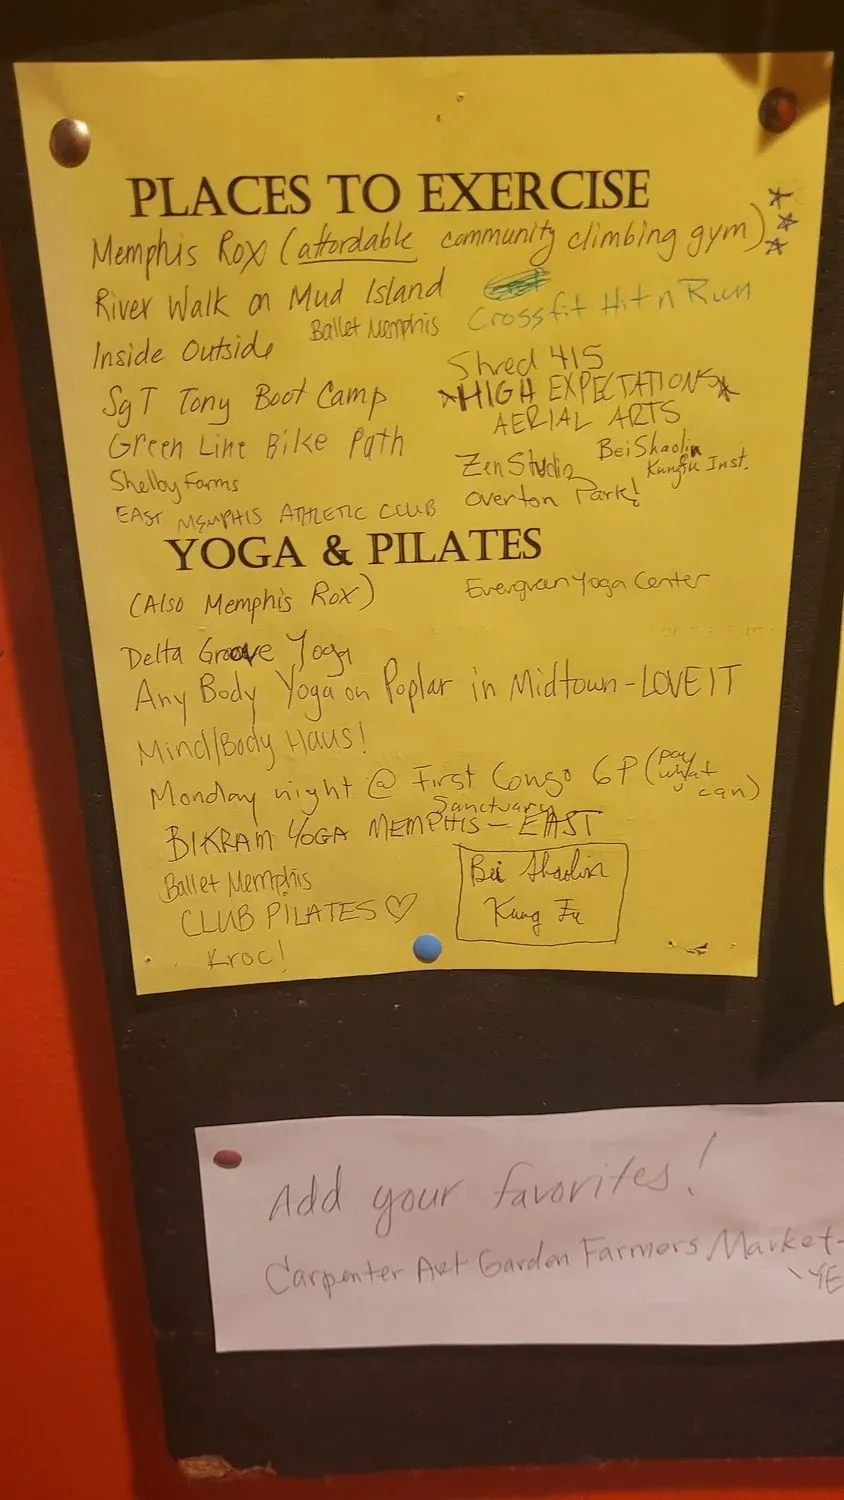 PLACES TO EXERCISE
Memphis Rox (affordable community climbing gym)
River Walk on Mud Island
Crossfit Hit n Run
Inside Outside
Ballet Memphis
Shred 415
SgT Tony Boot Camp
HIGH EXPECTATIONS
AERIAL ARTS
Green Line Bike Path
Zen Studio
Bei Shaolin
Kungfu Inst.
Shelby Farms
Overton Park!
EAST MEMPHIS ATHLETIC CLUB
YOGA & PILATES
(Also Memphis Rox)
Evergreen Yoga Center
Delta Groove Yoga
Any Body Yoga on Poplar in Midtown - LOVE IT
Mind/Body Haus!
Monday night @ First Congo 6P (pay what u can)
Sanctuary
BIKRAM YOGA MEMPHIS - EAST
Ballet Memphis
Bei Shaolin
Kung Fu
CLUB PILATES ♡
Kroc!
Add your favorites!
Carpenter Art Garden Farmers Market-
YE